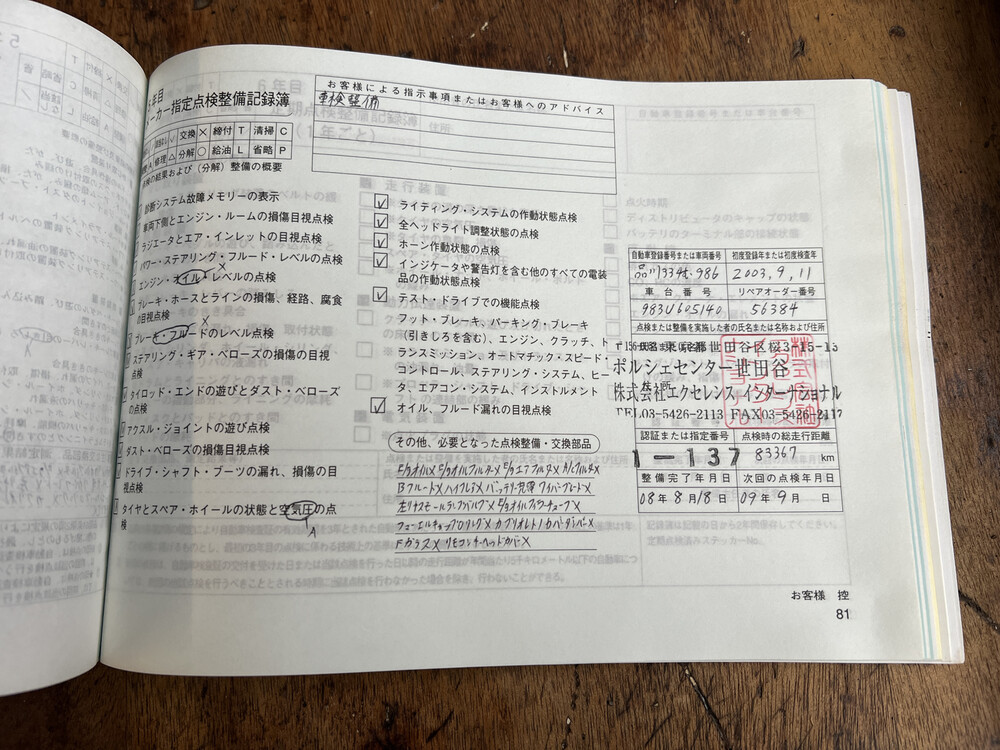 年目
お客様による指示事項またはお客様へのアドバイス
車検整備
カー指定点検整備記録簿
交換 × 締付 T 清掃 C
修理 △ 分解 ○ 給油 L 省略 P
検の結果および（分解）整備の概要
診断システム故障メモリーの表示
車両下側とエンジン・ルームの損傷目視点検
ラジエータとエア・インレットの目視点検
パワー・ステアリング・フルード・レベルの点検
エンジン・オイル・レベルの点検
×
ブレーキ・ホースとラインの損傷、経路、腐食
の目視点検
ブレーキ・フルードのレベル点検
×
ステアリング・ギア・ベローズの損傷の目視
点検
タイロッド・エンドの遊びとダスト・ベローズ
の点検
アクスル・ジョイントの遊び点検
ダスト・ベローズの損傷目視点検
ドライブ・シャフト・ブーツの漏れ、損傷の目
視点検
タイヤとスペア・ホイールの状態と空気圧の点
検
A
ライティング・システムの作動状態点検
全ヘッドライト調整状態の点検
ホーン作動状態の点検
インジケータや警告灯を含む他のすべての電装
品の作動状態点検
テスト・ドライブでの機能点検
フット・ブレーキ、パーキング・ブレーキ
（引きしろを含む）、エンジン、クラッチ、ト
ランスミッション、オートマチック・スピード・
コントロール、ステアリング・システム、ヒー
タ、エアコン・システム、インストルメント
オイル、フルード漏れの目視点検
その他、必要となった点検整備・交換部品
E/gオイル× E/gオイルフィルター× E/gエアフィルタ× A/Cフィルタ×
Bフルード× ハイフレ× バッテリー充電 ワイパーブレード×
E/gオイルフィラーチューブ×
フューエルキャップOリング× カブリオレトノカバーダンパー×
Fガラス× リモコンキーヘッドカバー×
自動車登録番号または車両番号 初度登録年または初度検査年
品川334そ・986 2003,9,11
車台番号 リペアオーダー番号
983U605140 56384
点検または整備を実施した者の氏名または名称および住所
東京都世田谷区桜3-15-15
ポルシェセンター世田谷
株式会社エクセレンス インターナショナル
TEL03-5426-2113 FAX03-5426-2117
認証または指定番号 点検時の総走行距離
1-137 83367 km
整備完了年月日 次回の点検年月日
08年8月18日 09年9月 日
お客様 控
81